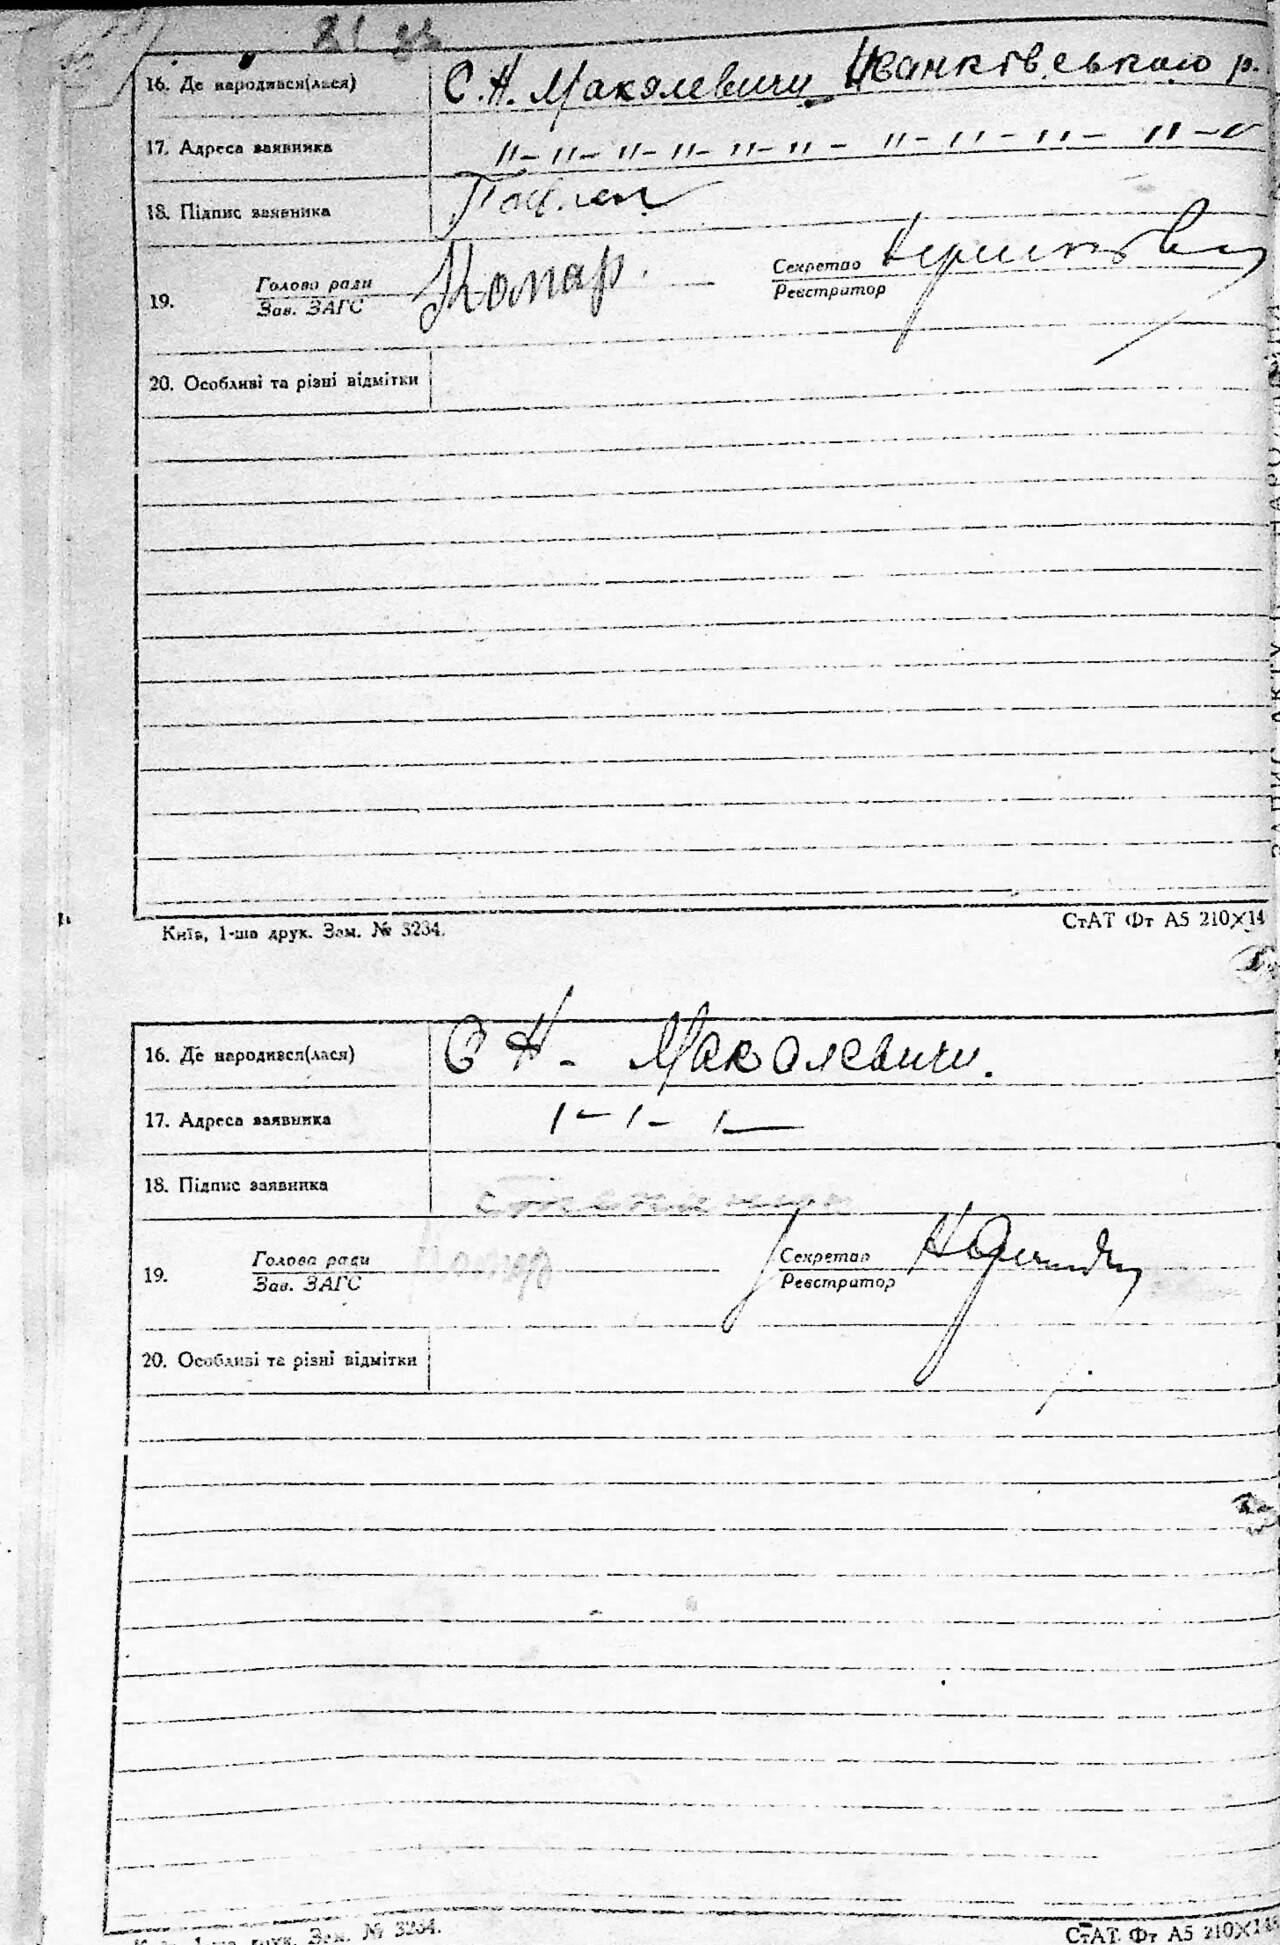 16. Де народився(лася) С. Н. Макалевичи Іванківського р.
17. Адреса заявника -"-"-"-"-"-"-"-"-
18. Підпис заявника
19. Голова ради Зав. ЗАГС Комар. Секретар Реєстратор
20. Особливі та різні відмітки
Київ, 1-ша друк. Зам. № 3234. СтАТ Фт А5 210×14
16. Де народився(лася) С Н- Макалевичи.
17. Адреса заявника ı-ı-ı-
18. Підпис заявника
19. Голова ради Зав. ЗАГС Секретар Реєстратор
20. Особливі та різні відмітки
Зам. № 3234. СтАТ Фт А5 210×148